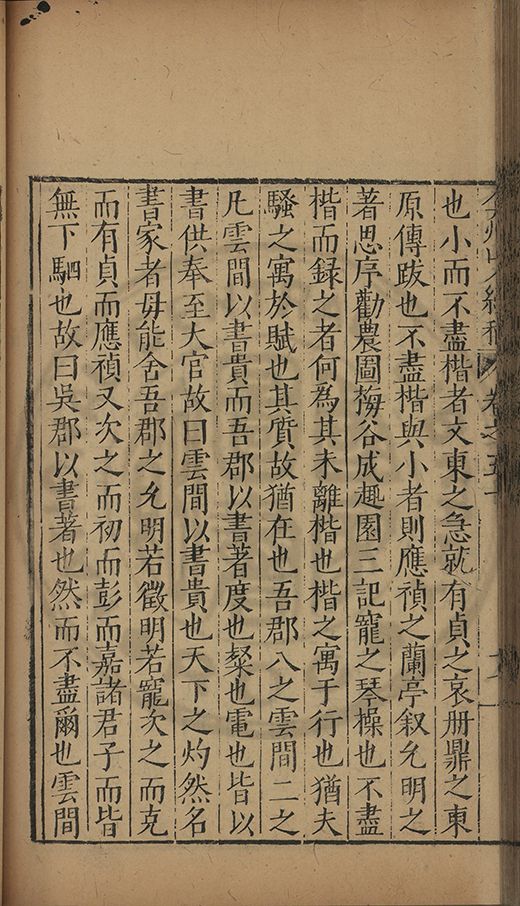 弇州山人續稿 卷之五十
也小而不盡楷者文東之急就有貞之哀册鼎之東
原傳跋也不盡楷與小者則應禎之蘭亭叙允明之
著思序勸農圖梅谷成趣園三記寵之琴操也不盡
楷而録之者何為其未離楷也楷之寓于行也猶夫
騷之寓於賦也其質故猶在也吾郡八之雲間二之
凡雲間以書貴而吾郡以書著度也粲也電也皆以
書供奉至大官故曰雲間以書貴也天下之灼然名
書家者毋能舍吾郡之允明若徵明若寵次之而克
而有貞而應禎又次之而初而彭而嘉諸君子而皆
無下駟也故曰吳郡以書著也然而不盡爾也雲間